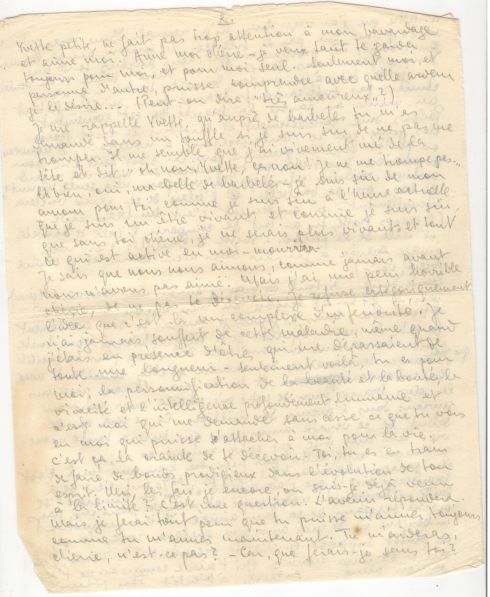 Yvette petite, ne fait pas trop attention à mon bavardage
et aime moi. Aime moi chérie - je veux tant te garder
toujours pour moi, et pour moi seul. Seulement moi, et
personne d'autre, puisse comprendre avec quelle ardeur
je le désire... (Peut-on dire: "très amoureux"?)
Je me rappelle Yvette, qu'auprès de barbelés tu m'as
demandé dans un souffle si je suis sûr de ne pas me
tromper. Il me semble que j'ai vivement mué de la
tête et dit: "oh non, Yvette, ça non! Je ne me trompe pas..."
Eh bien, oui, ma belle de barbelé - je suis sûr de mon
amour pour toi comme je suis sûr à l'heure actuelle
que je suis un être vivant et comme je suis sûr
que sans toi chérie, je ne serais plus vivant et tout
ce qui est active en moi - mourrira
Je sais que nous nous aimons, comme jamais avant
nous n'avons pas aimé. Mais j'ai une peur horrible
chérie, de ne pas te décevoir. Je refuse catégoriquement
l'idée que c'est là un complexe d'infériorité. Je
n'ai jamais souffert de cette maladie, même quand
j'étais en présence d'êtres qui me dépassaient de
toute une longueur - seulement voilà, tu es pour
moi, la personnification de la beauté et la bonté, la
vivalité et l'intelligence profondement humaine et
c'est moi qui me demande sans cesse ce que tu vois
en moi qui puisse t'attacher à moi pour la vie.
c'est ça la crainte de te décevoir. Toi, tu es en train
de faire de bonds prodigieux dans l'évolution de ton
esprit. Moi, les fais-je encore, ou suis-je déjà venu
à la limite? C'est une question. L'avenir répondra.
Mais je ferai tout pour que tu puisse m'aimer toujours
comme tu m'aimes maintenant. Tu m'aideras,
chérie, n'est-ce pas? - Car, que ferais-je sans toi?